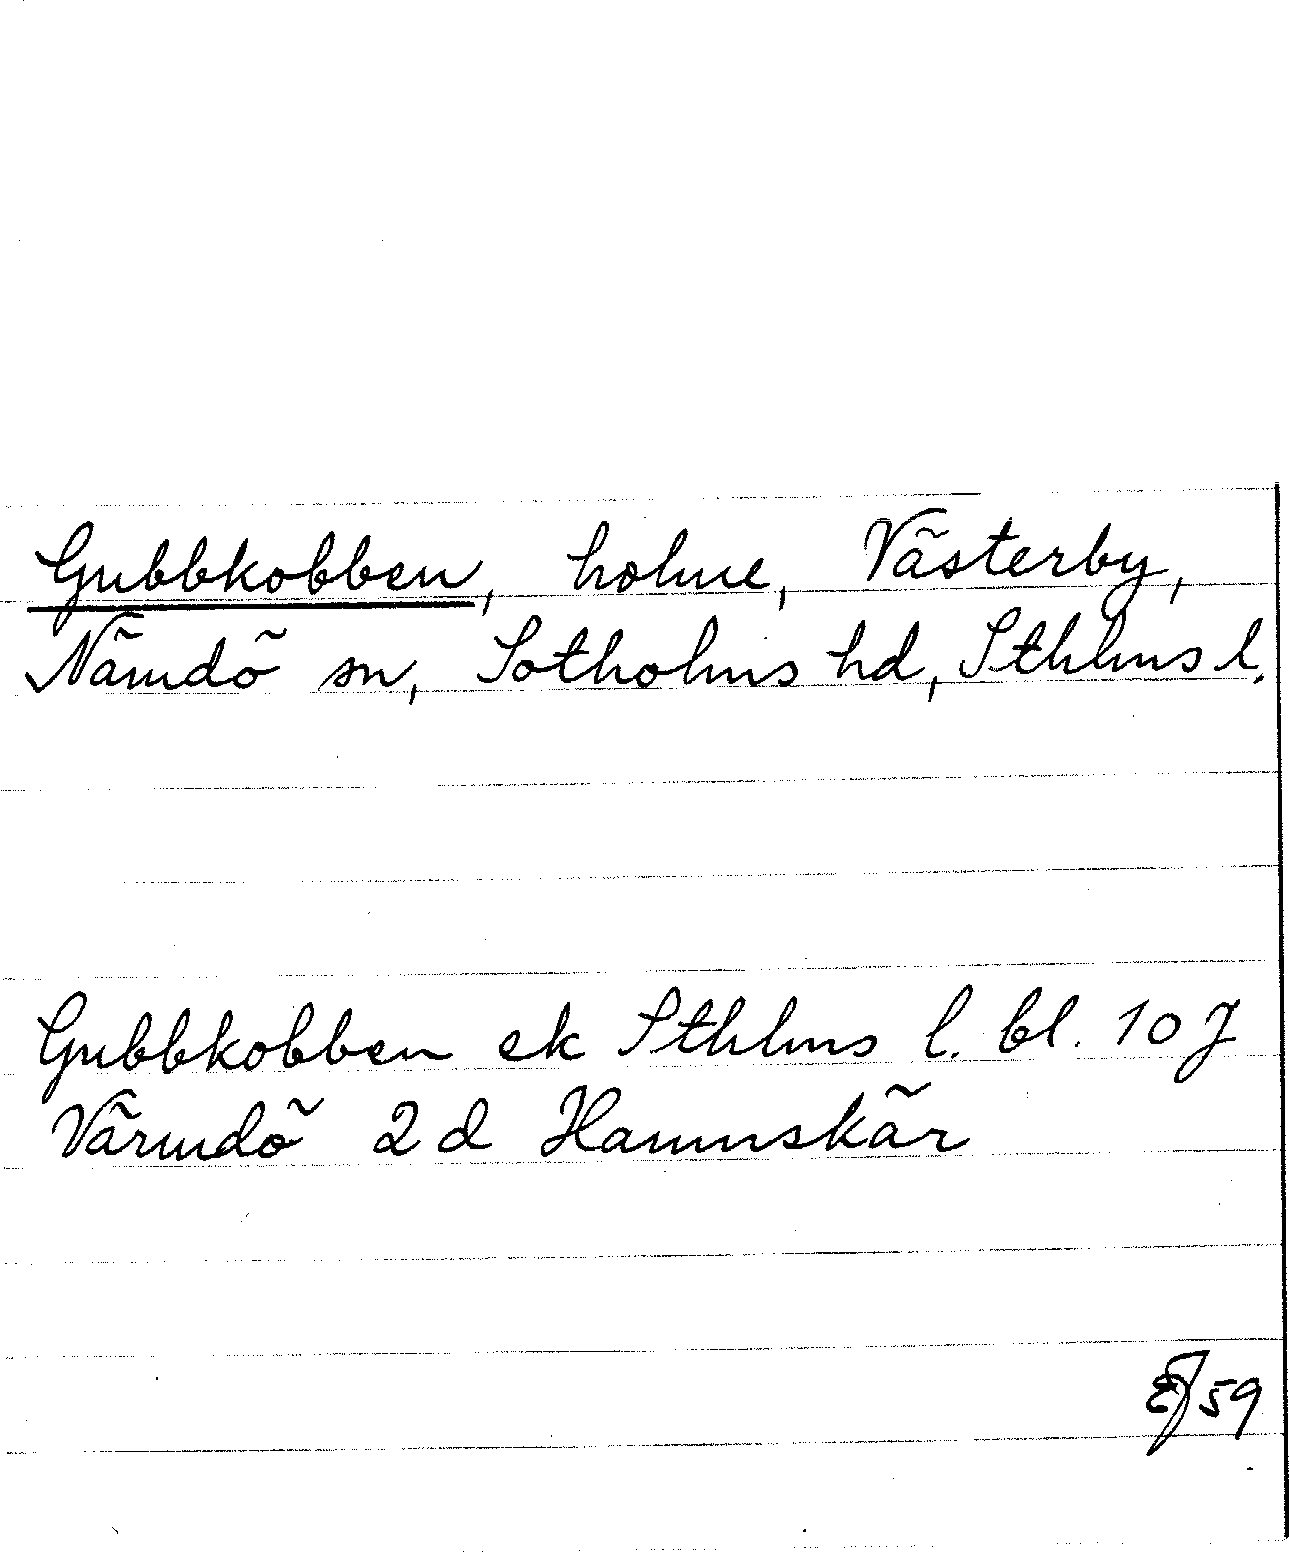 Gubbkobben, holme, Västerby,
Nämdö sn, Sotholms hd, Sthlms l.
Gubbkobben ek Sthlms l. bl. 10 J
Värmdö 2 d Hamnskär
EJ 59